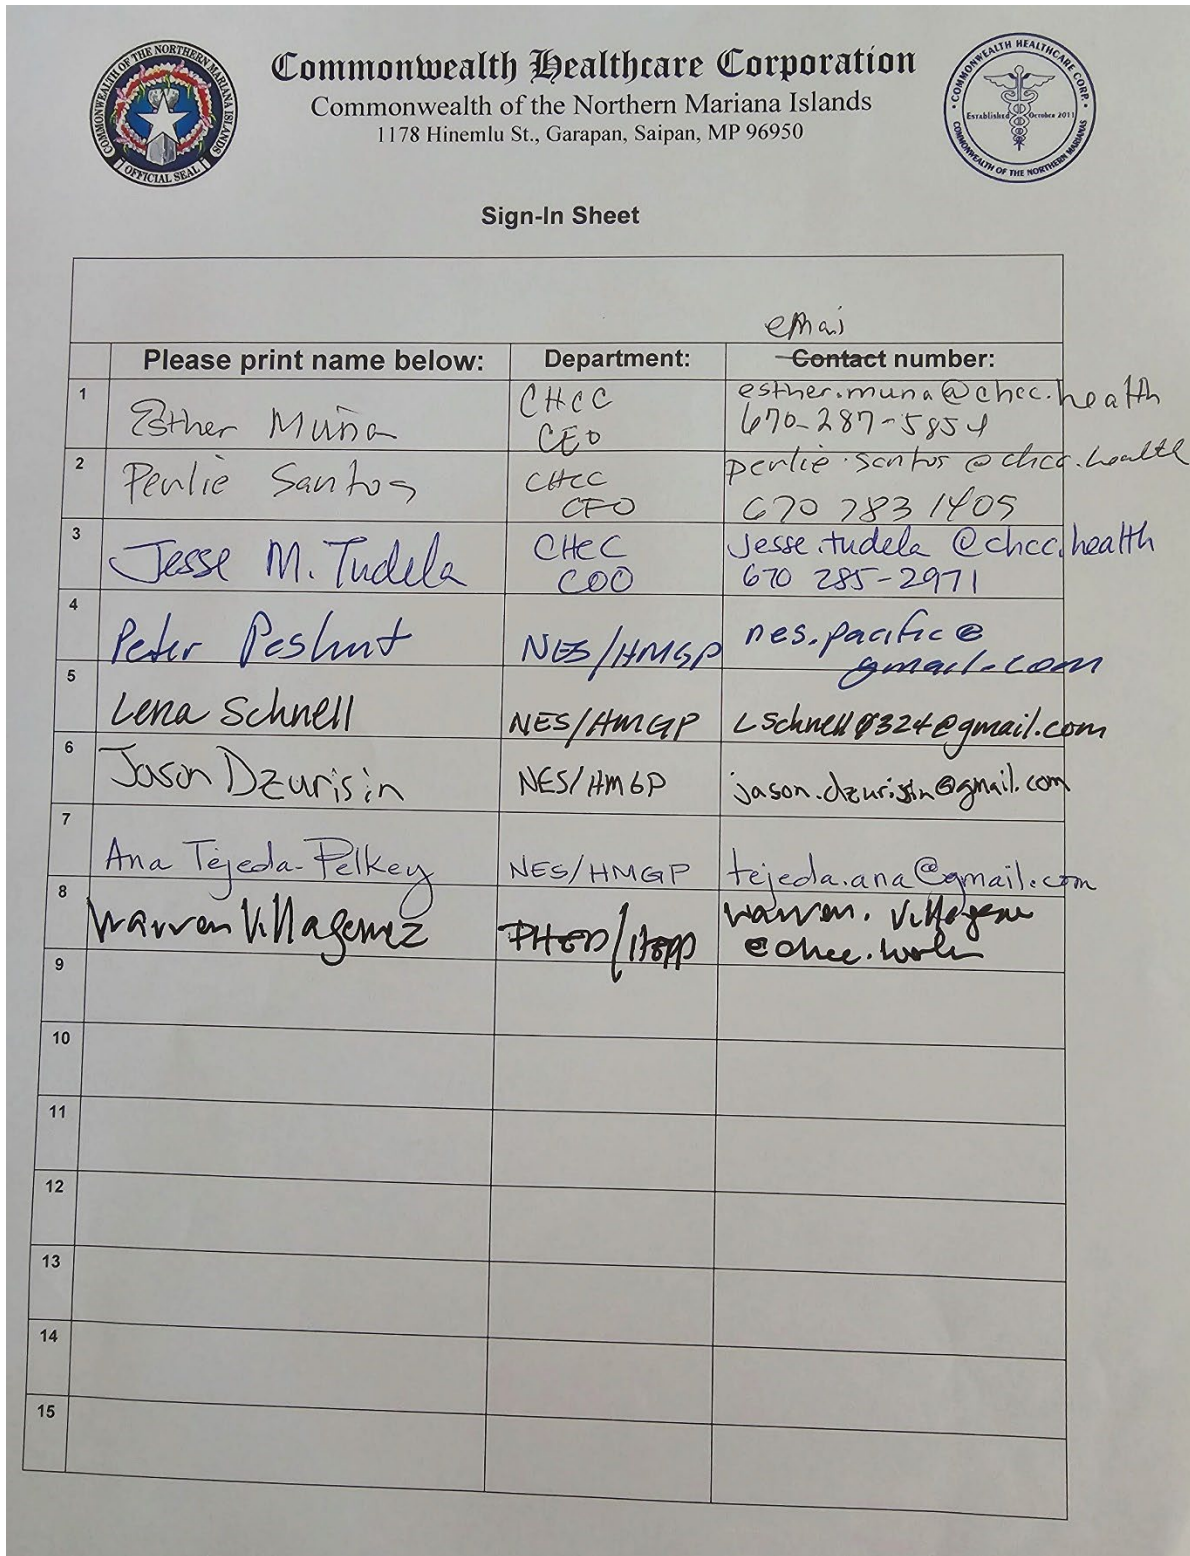 COMMONWEALTH OF THE NORTHERN MARIANA ISLANDS
OFFICIAL SEAL
Commonwealth Healthcare Corporation
Commonwealth of the Northern Mariana Islands
1178 Hinemlu St., Garapan, Saipan, MP 96950
COMMONWEALTH HEALTHCARE CORP.
Established October 2011
COMMONWEALTH OF THE NORTHERN MARIANAS
Sign-In Sheet
emai
Please print name below: Department: Contact number:
1 Esther Muña CHCC CEO esther.muna@chcc.health
670-287-5854
2 Perlie Santos CHCC CFO perlie.santos@chcc.health
670 783 1405
3 Jesse M. Tudela CHCC COO Jesse.tudela @chcc.health
670 285-2971
4 Peter NES/HMGP nes.pacific@
gmail.com
5 Lena Schnell NES/HMGP Lschnell0324@gmail.com
6 Jason Dzurisin NES/HMGP jason.dzurisin@gmail.com
7 Ana Tejeda-Pelkey NES/HMGP tejeda.ana@gmail.com
8 Warren Villagomez warren.
@chcc.
9
10
11
12
13
14
15